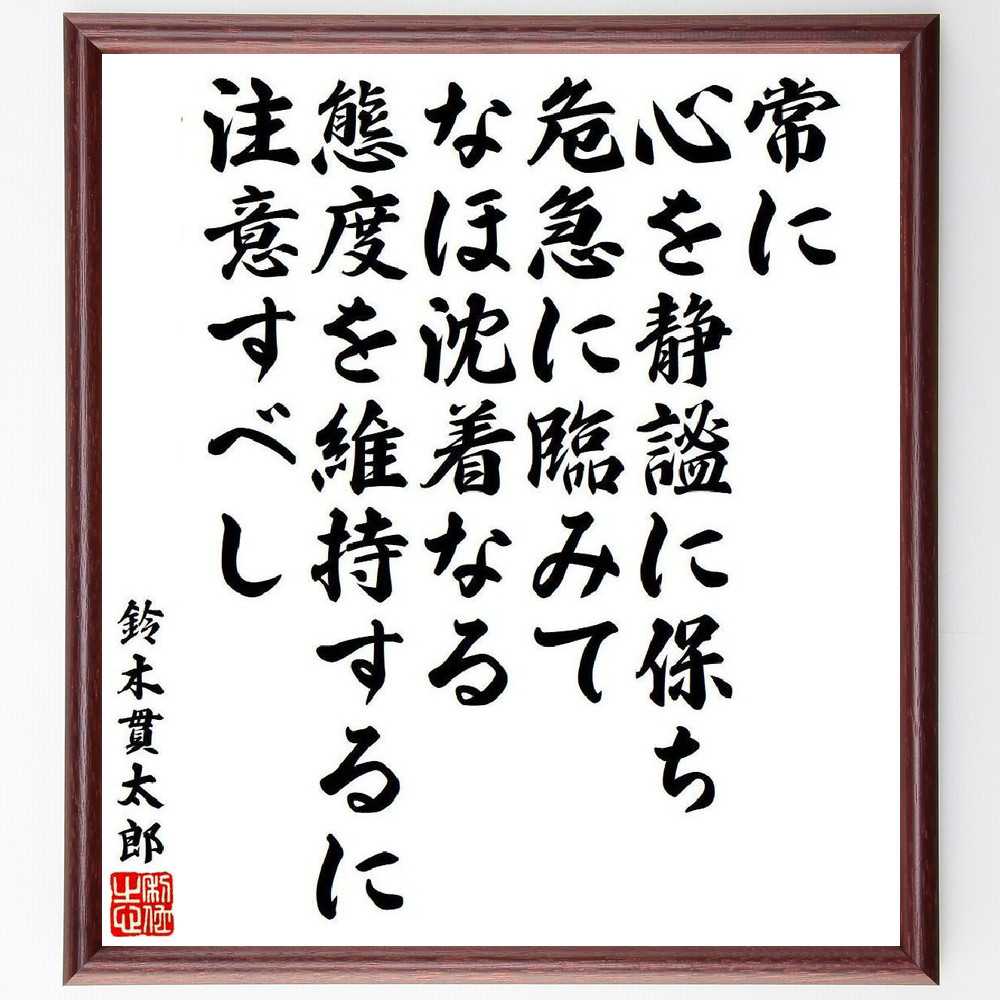 常に
心を静謐に保ち
危急に臨みて
なほ沈着なる
態度を維持するに
注意すべし
鈴木貫太郎